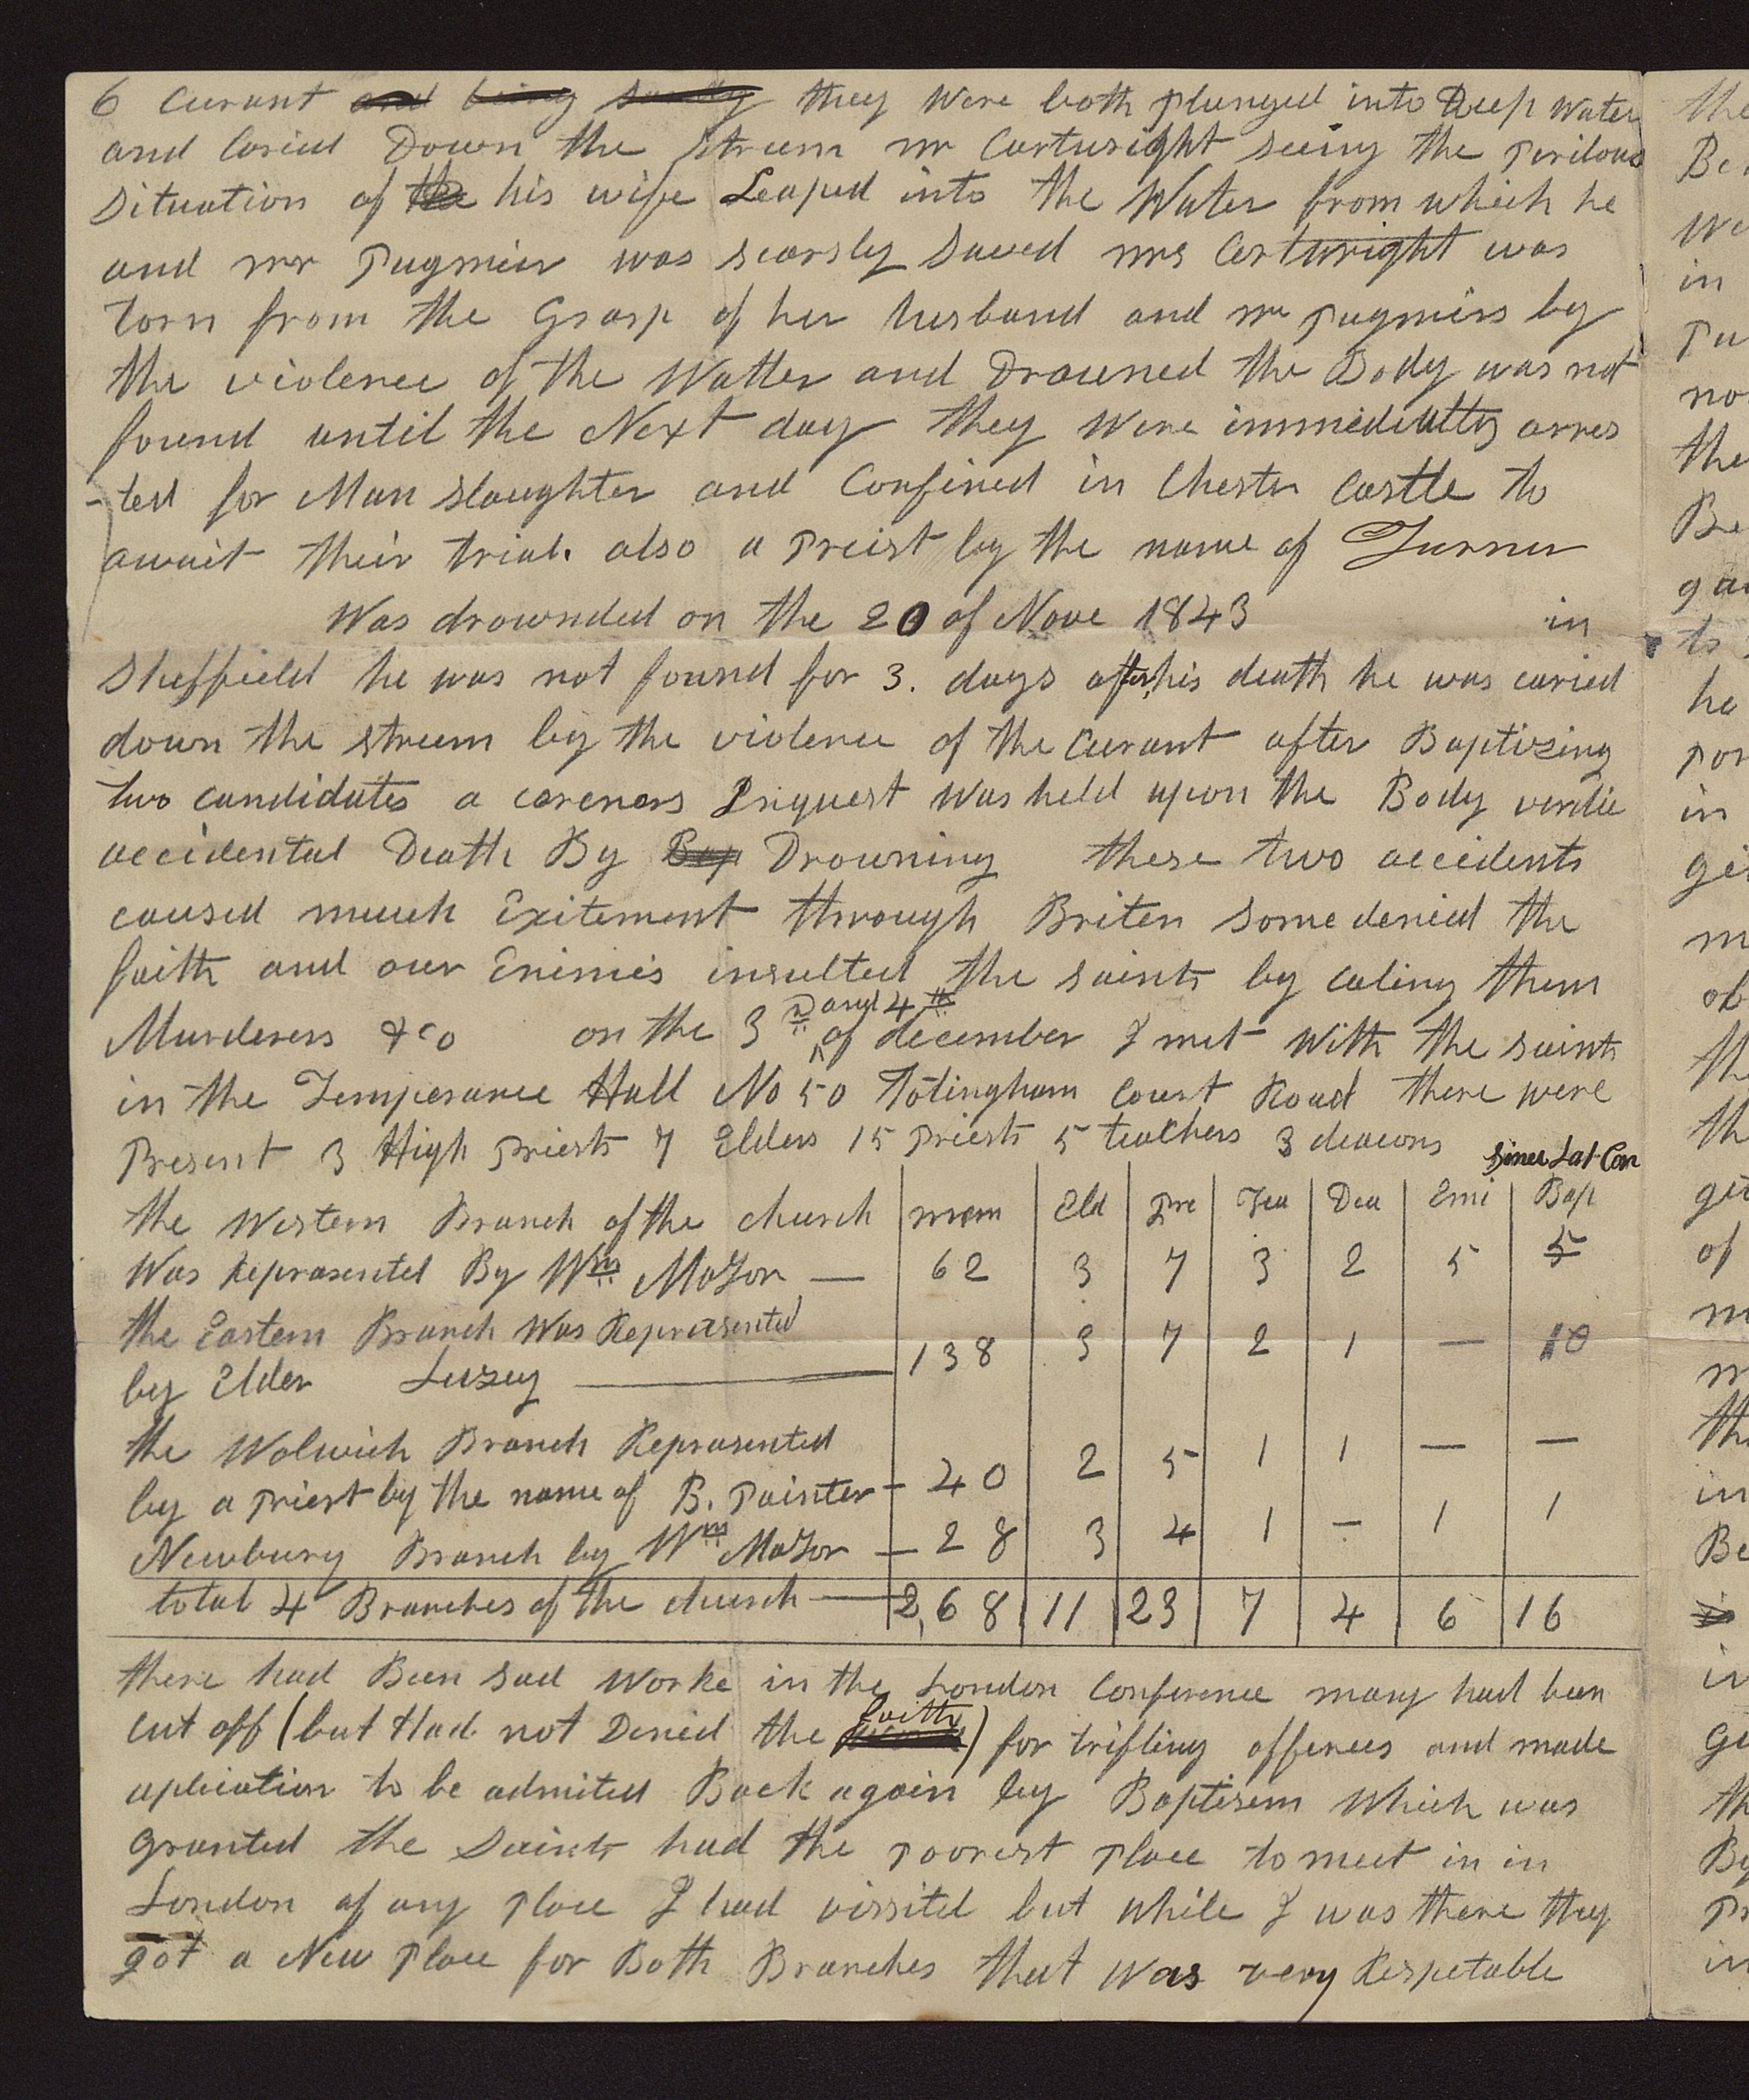 6 Curant and being sudy they Were both plunged into Deep Water
and Caried Down the streem mr Cartwright seeing the perilous
situation of the his wife Leaped into the Water from which he
and mr Pugmier was scarsly saved mrs Cartwright was
torn from the Grasp of her husband and mr pugmirs by
the violence of the Watter and Drowned the Body was not
found until the Next day they Were immediattly arres
-ted for Man slaughter and Confined in Chester Castle to
await their trial. also a Preist by the name of Turner
Was drownded on the 20 of Nove 1843 in
Sheffield he was not found for 3. days after his death he was caried
down the streem by the violence of the curant after Baptizing
two candidates a coreners Inquest Was held upon the Body verdic
accidental Death By Bap Drowning these two accidents
caused much Exitement through Briten some denied the
faith and our Enimies insulted the saints by caling them
Murderers &co on the 3 D and 4 th of december I met With the saints
in the Temperance Hall No 50 Totingham Court Road there were
Present 3 High priests 7 Elders 15 priests 5 teachers 3 deacons Since Last Con
the Western Branch of the church mem Eld Pre Tea Dea Emi Bap
Was Reprasented By Wm Major — 62 3 7 3 2 5 5
the Eastern Branch Was Reprasented
by Elder Luzey — 138 3 7 2 1 — 10
the Wolwich Branch Reprasented
by a priest by the name of B. Painter - 40 2 5 1 1 — —
Newbury Branch by Wm Major — 28 3 4 1 — 1 1
total 4 Branches of the church — 2,68 11 23 7 4 6 16
there had Been sad Worke in the London Conference many had been
cut off (but Had not Denied the faith) for trifling offences and made
aplication to be admited Back again by Baptisem Which was
granted the Saints had the poorest place to meet in in
London of any place I had vissited but while I was there they
got a New place for Both Branches that was very Respetable
the
Be
We
in
pu
no
the
Be
ga
to
ha
por
in
gi
m
ob
th
th
ge
of
m
m
th
in
Be
in
Ge
th
By
Pr
in